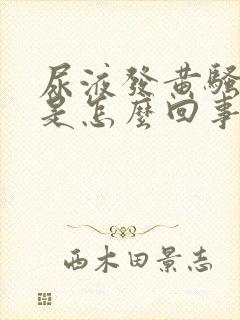 尿液發黄騷
是怎麼回事
西木田景志